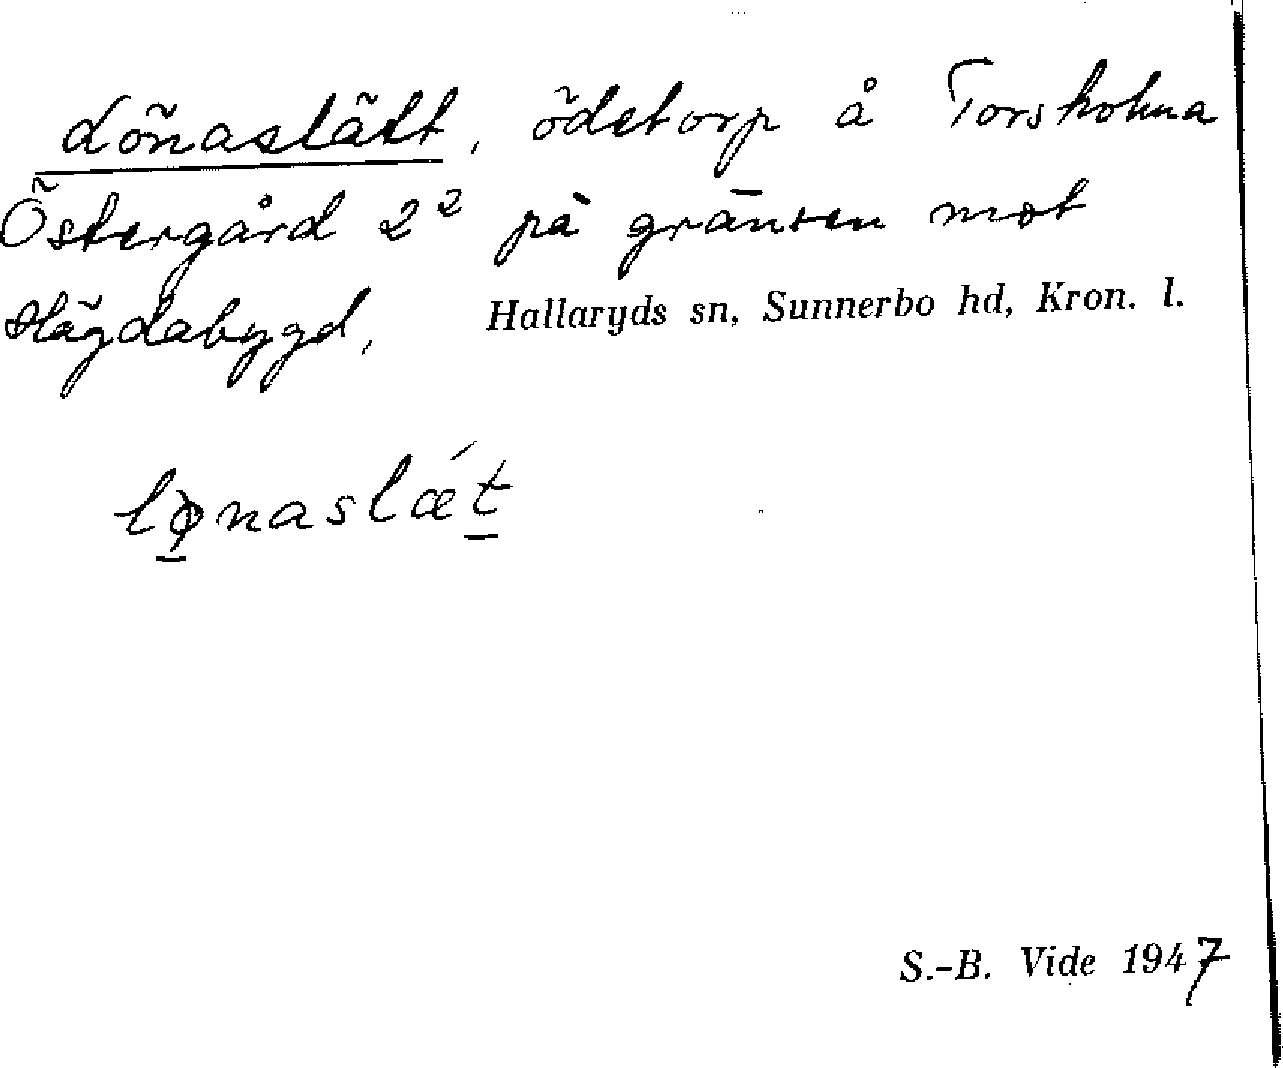 Lönaslätt, ödetorp å Torsholma
Östergård 2² på gränsen mot
Hägdabygd, Hallaryds sn, Sunnerbo hd, Kron. l.
lø̱naslǽṯ
S.-B. Vide 1947